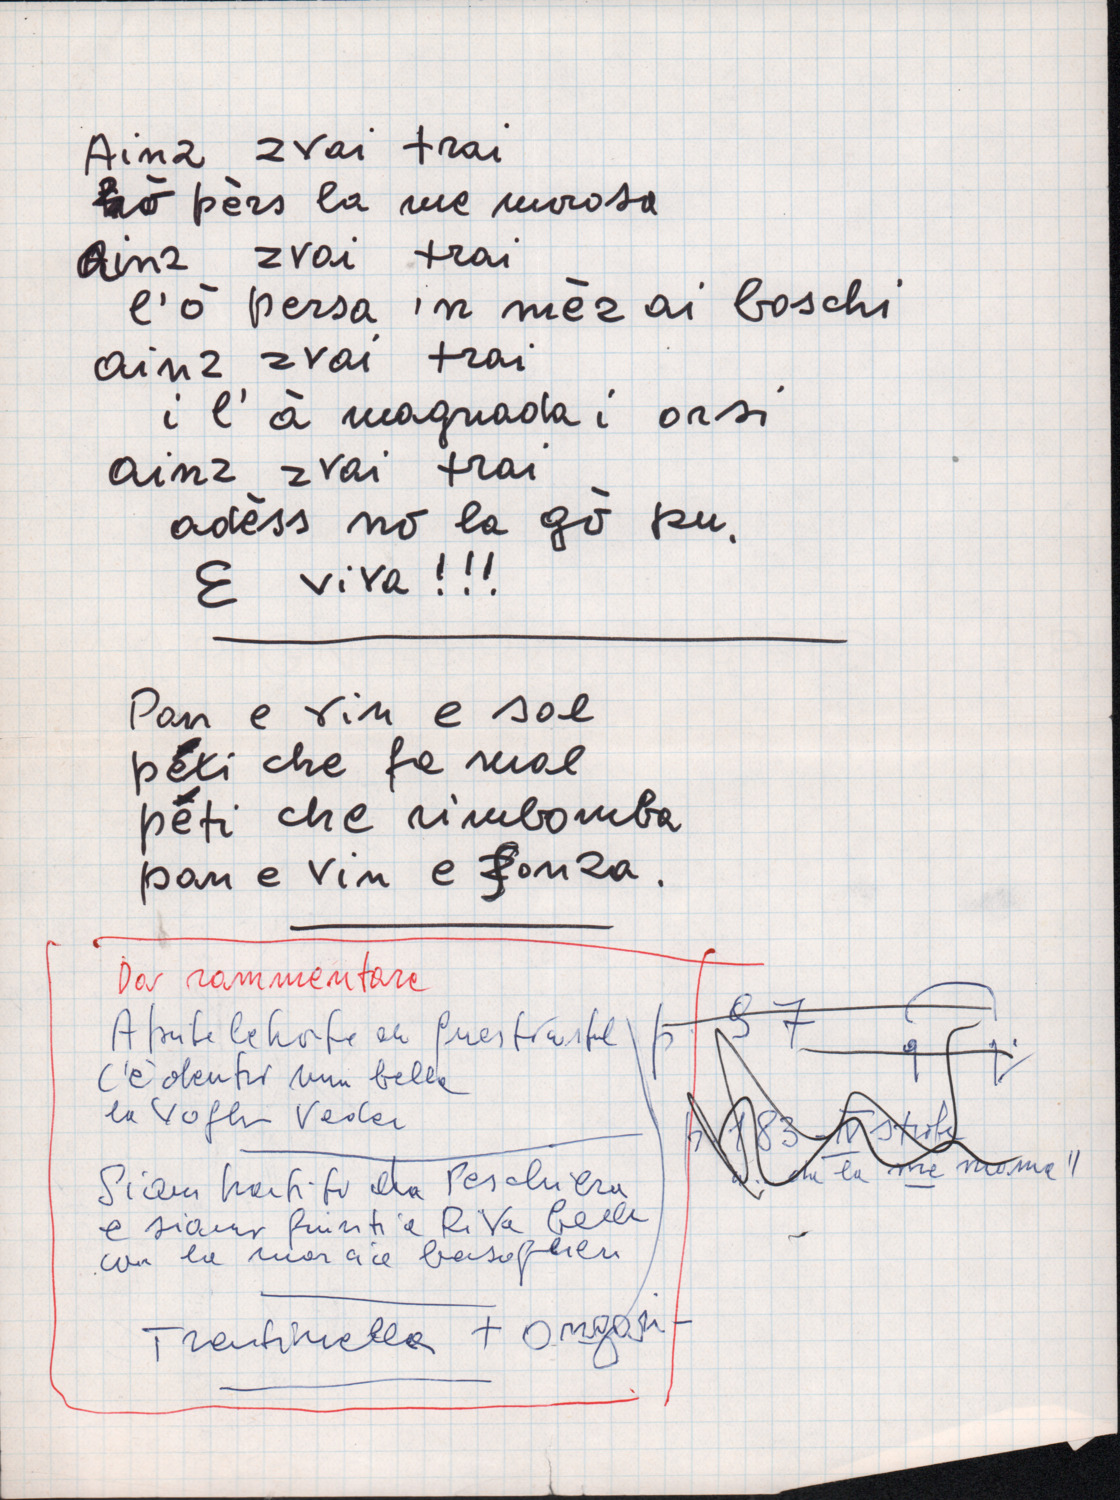 Ainz zvai trai
hò pèrs la me morosa
ainz zvai trai
l'ò persa 'n mèz ai boschi
ainz zvai trai
i l'à magnada i orsi
ainz zvai trai
adèss no la gò pu.
E viva!!!
Pan e vin e sal
pèti che fa mal
pèti che rimbomba
pan e vin e sonza.
Da rammentare
Aprite le porte
c'è dentro una bella
la voglio veder
Siam partiti da Peschiera
e siamo giunti a Riva bella
con la marcia bersaglieri
Trentinella +
p. 97
p. 183 - IV strofa
la me moma"